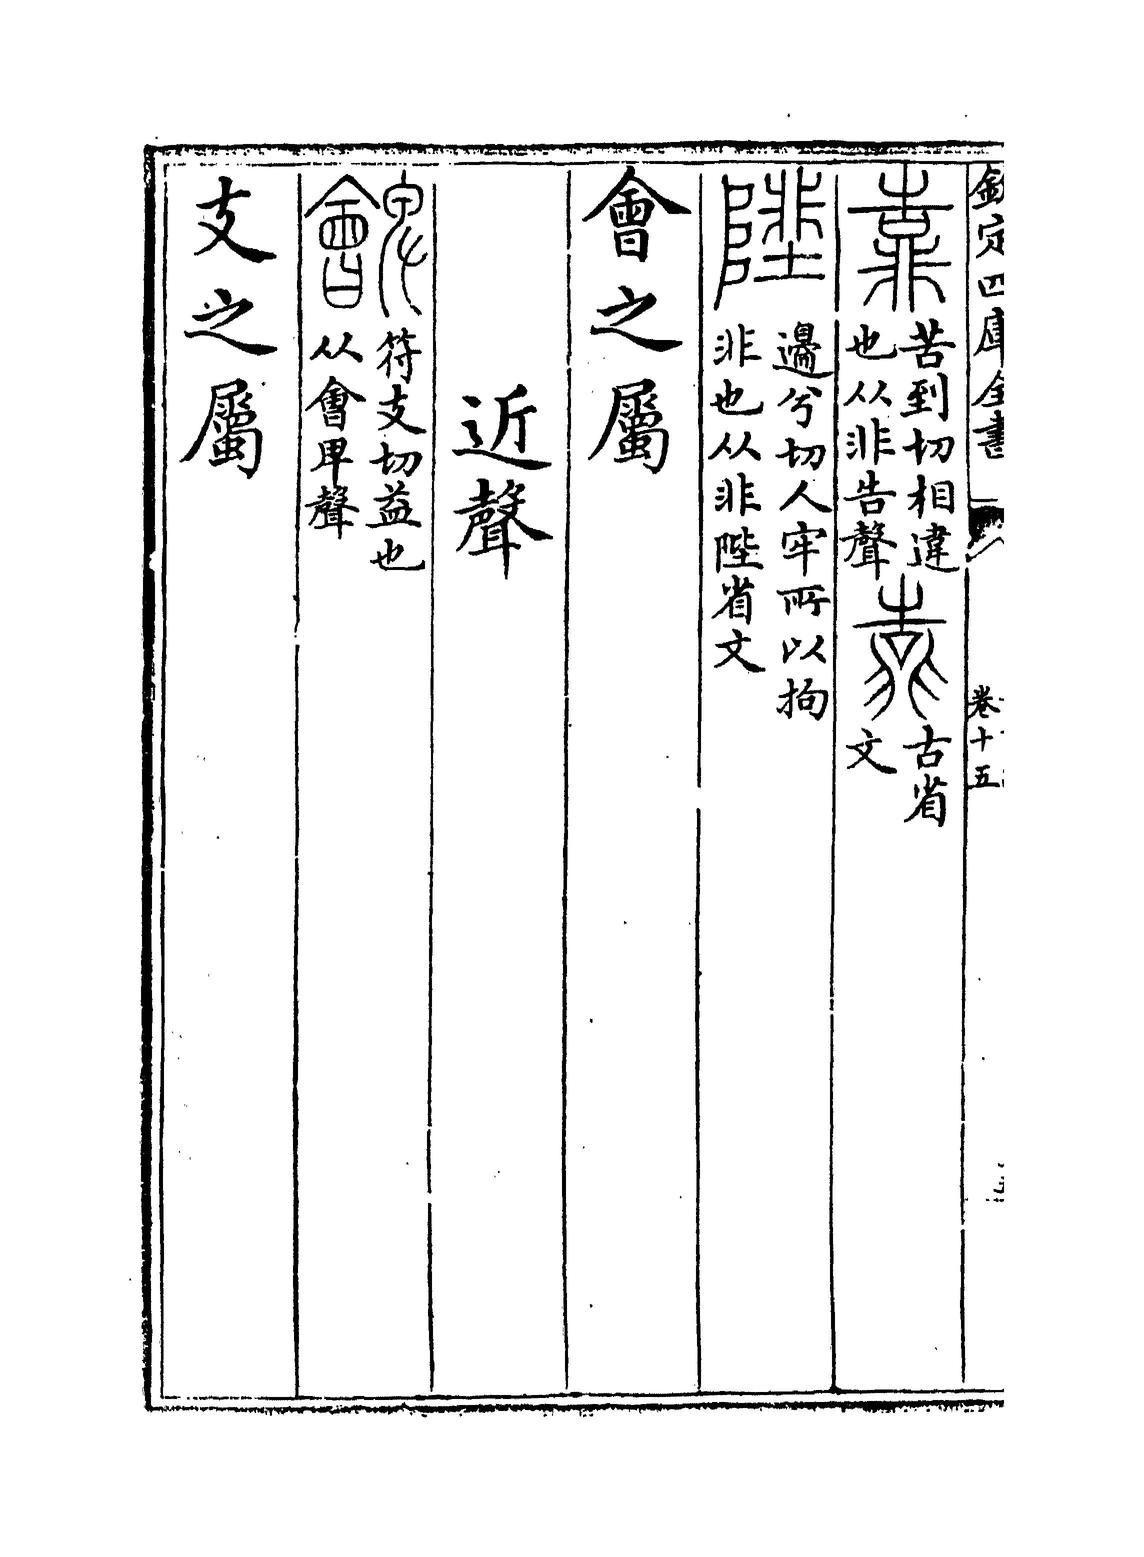 欽定四庫全書 卷十五
靠 苦到切相違
也从非告聲
古省
文
邊兮切人牢所以拘
非也从非陛省文
會之屬
近聲
朇 符支切益也
从會卑聲
支之屬